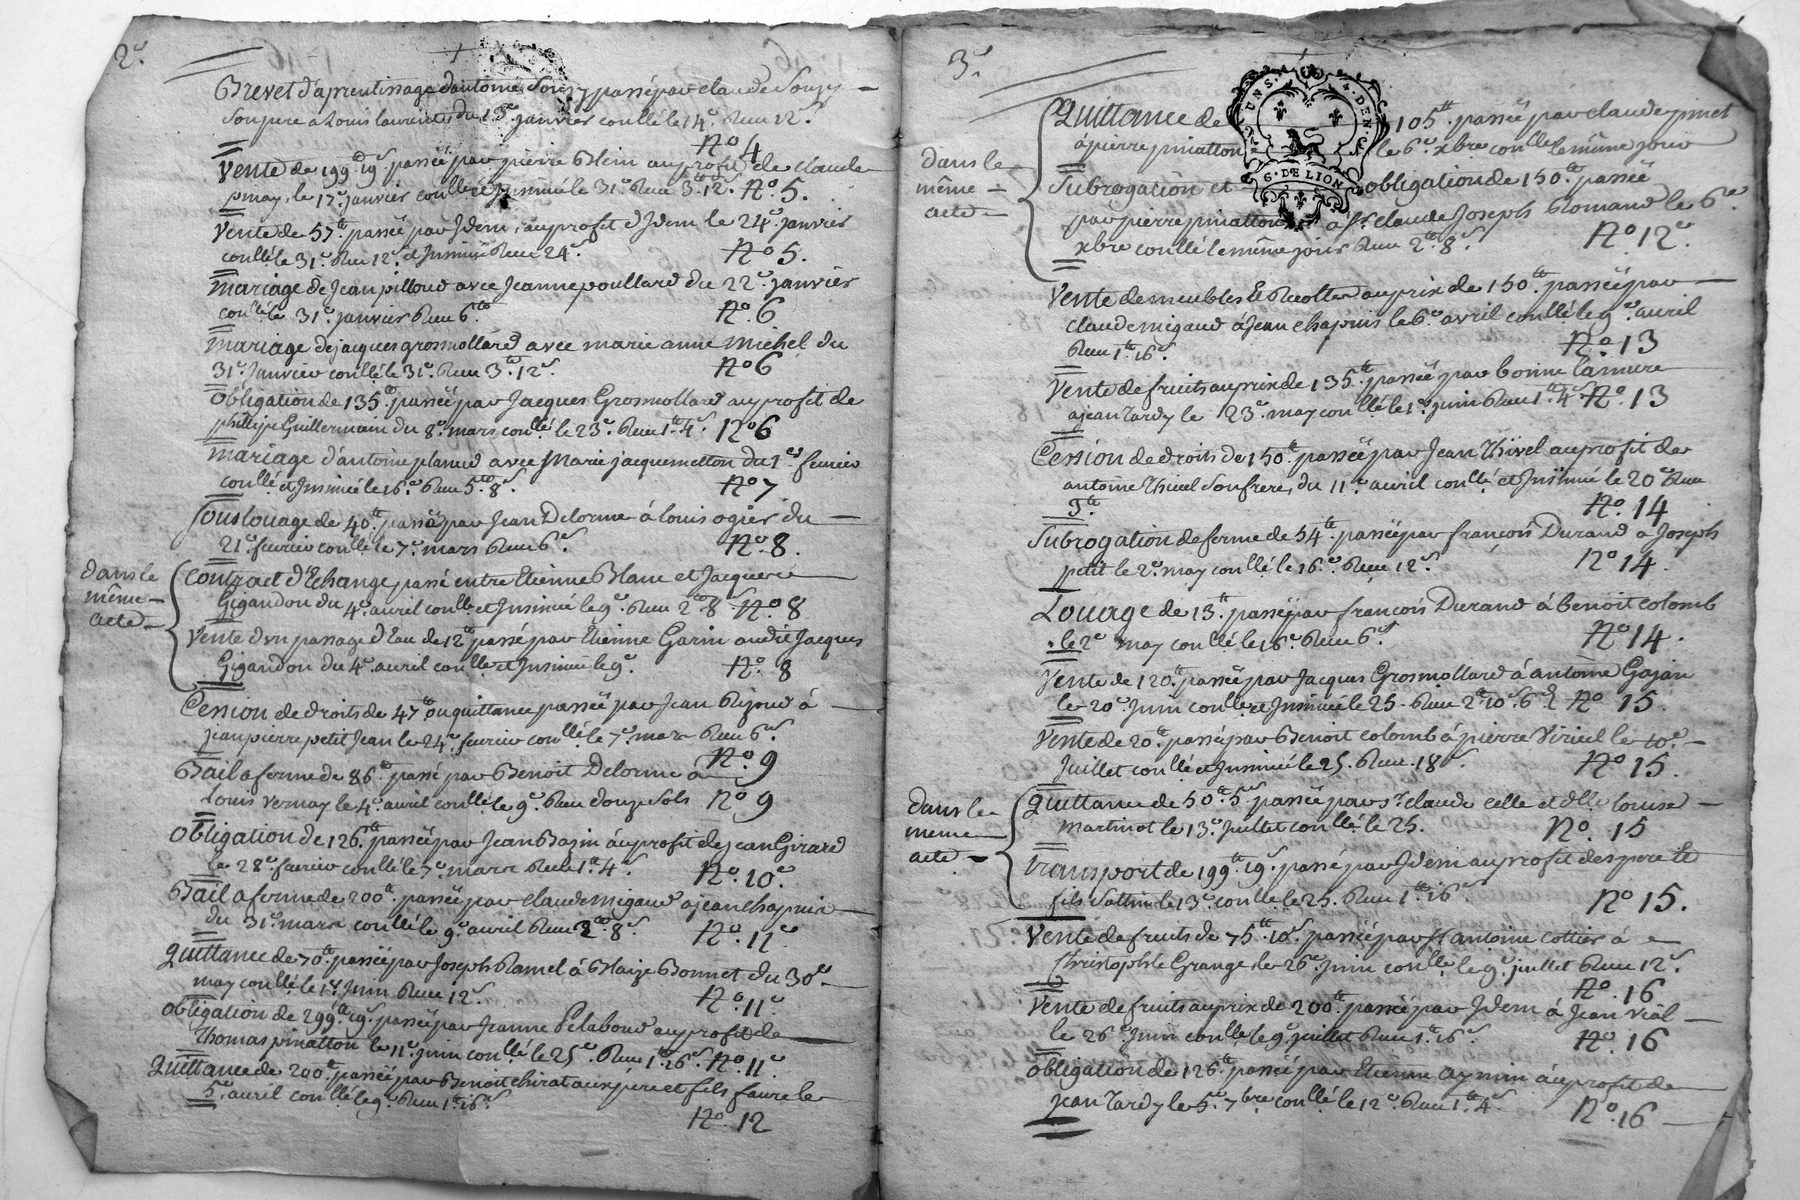 2e.
Brevet d'aprentissage d'antoine Souzy passé par claude Souzy
Son pere a Louis laurent, du 13e janvier conllé le 14e. Reçu 12s.
No 4
Vente de 199tt 19s passée par pierre Blein au profit de claude
pinay, le 17e. janvier conllé et Jnsinué le 31e. Reçu 3tt 12s. No 5.
Vente de 57tt passée par Jdem, au profit d'Jdem le 24e. janvier
conllé le 31e. Reçu 12s. et Jnsinué Reçu 24s.
No 5.
Mariage de Jean pilloud avec Jeanne poullard du 22e janvier
conllé le 31e. janvier Reçu 6tt
No. 6
Mariage de jacques grosmollard avec marie anne michel du
31e. Janvier conllé le 31e. Reçu 3tt 12s.
No 6
obligation de 135tt passée par Jacques Grosmollard au profit de
phillipe Guillermain du 8e. mars conllé le 23e. Reçu 1tt 4s. No 6
mariage d'antoine planud avec Marie jacquemetton du 1er fevrier
conllé et Jnsinué le 16e. Reçu 5tt 8s.
No 7
Souslouage de 40tt passé par Jean Delorme à louis ogier du
21e. fevrier conllé le 7e. mars Reçu 6s.
No. 8
dans le
même
acte
contract d'Echange passé entre Etienne Blanc et Jacques
Gigandon du 4e avril conllé et Jnsinué le 9e. Reçu 2tt 8s No 8
Vente d'un passage d'Eau de 12tt passé par Etienne Garin audit Jacques
Gigandon du 4e. avril conllé et Jnsinué le 9e.
No. 8
Cession de droits de 47tt ou quittance passée par Jean Rigoud à
jean pierre petit Jean le 24e. fevrier conllé le 7e. mars Reçu 6s.
No 9
Bail a ferme de 86tt passé par Benoit Delorme à
Louis vernay le 4e. avril conllé le 9e. Reçu douze sols No 9
obligation de 126tt passée par Jean Bazin au profit de jean Girard
le 28e. fevrier conllé le 7e. mars Reçu 1tt 4s.
No. 10.
Bail a ferme de 200tt passée par claude migaud a jean chapuis
du 31e. mars conllé le 9e. avril Reçu 2tt 8s.
No. 11
quittance de 70tt passée par Joseph Ramel à Blaize Bonnet du 30e
may conllé le 1er. Juin Reçu 12s.
No 11
obligation de 299tt 19s. passée par Jeanne Pelaboud au profit de
Thomas pinatton le 11e. Juin conllé le 25e. Reçu 1tt 16s. No. 11
quittance de 200tt passée par Benoit chirat aux père et fils favre le
5e. avril conllé le 9e. Reçu 1tt 16s.
No. 12
3e.
Quittance de 105tt passée par claude pinet
à pierre pinatton le 6e. xbre conllé le même jour
dans le
même
acte
Subrogation et obligation de 150tt passée
par pierre pinatton a sr. claude Joseph Romand le 6e
xbre conllé le même jour Reçu 2tt 8s.
No 12
G. DE LION
Vente de meubles et Recoltes au prix de 150tt passée par
claude migaud à jean chapuis le 6e. avril conllé le 9e. avril
Reçu 1tt 16s.
No. 13
Vente de fruits au prix de 135tt passée par bonne lamure
a jean Tardy le 23e. may conllé le 1er. juin Reçu 1tt 4s No. 13
Cession de droits de 150tt passée par Jean Thivel au profit de
antoine Thivel Son frere, du 11e. avril conllé et Jnsinué le 20e Reçu
3tt
No. 14
Subrogation de ferme de 54tt passée par francois Durand a Joseph
petit le 2e. may conllé le 16e. Reçu 12s.
No 14
Louage de 13tt passée par francois Durand à benoit colomb
le 2e may conllé le 16e Reçu 6s.
No 14.
Vente de 120tt passée par Jacques Grosmollard à antoine Gajan
le 20e. Juin conllé et Jnsinué le 25. Reçu 2tt 10s. 6d No 15.
Vente de 20tt passée par Benoit colomb à pierre Viricel le 10e
Juillet conllé et Jnsinué le 25. Reçu 18s.
No 15.
dans le
meme
acte
quittance de 50tt 5s. passée par sr. claude celle et dlle louise
martinot le 13e. Juillet conllé le 25.
No. 15
transport de 199tt 19s. passé par Jdem au profit des pere et
fils le 13e. conllé le 25. Reçu 1tt 16s
No 15.
Vente de fruits de 75tt 10s. passée par sr antoine cottier à
christophle Grange le 26e. Juin conllé le 9e. juillet Reçu 12s.
No. 16
Vente de fruits au prix de 200tt passée par Jdem à Jean Vial
le 26e Juin conllé le 9e juillet Reçu 1tt 16s
No. 16
obligation de 126tt passée par Etienne aymin au profit de
jean Tardy le 5e. 7bre conllé le 12e. Reçu 1tt 4s.
No. 16